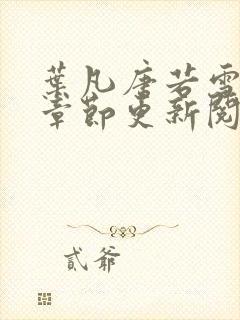 葉凡唐若雪
章節更新閱
貳爺